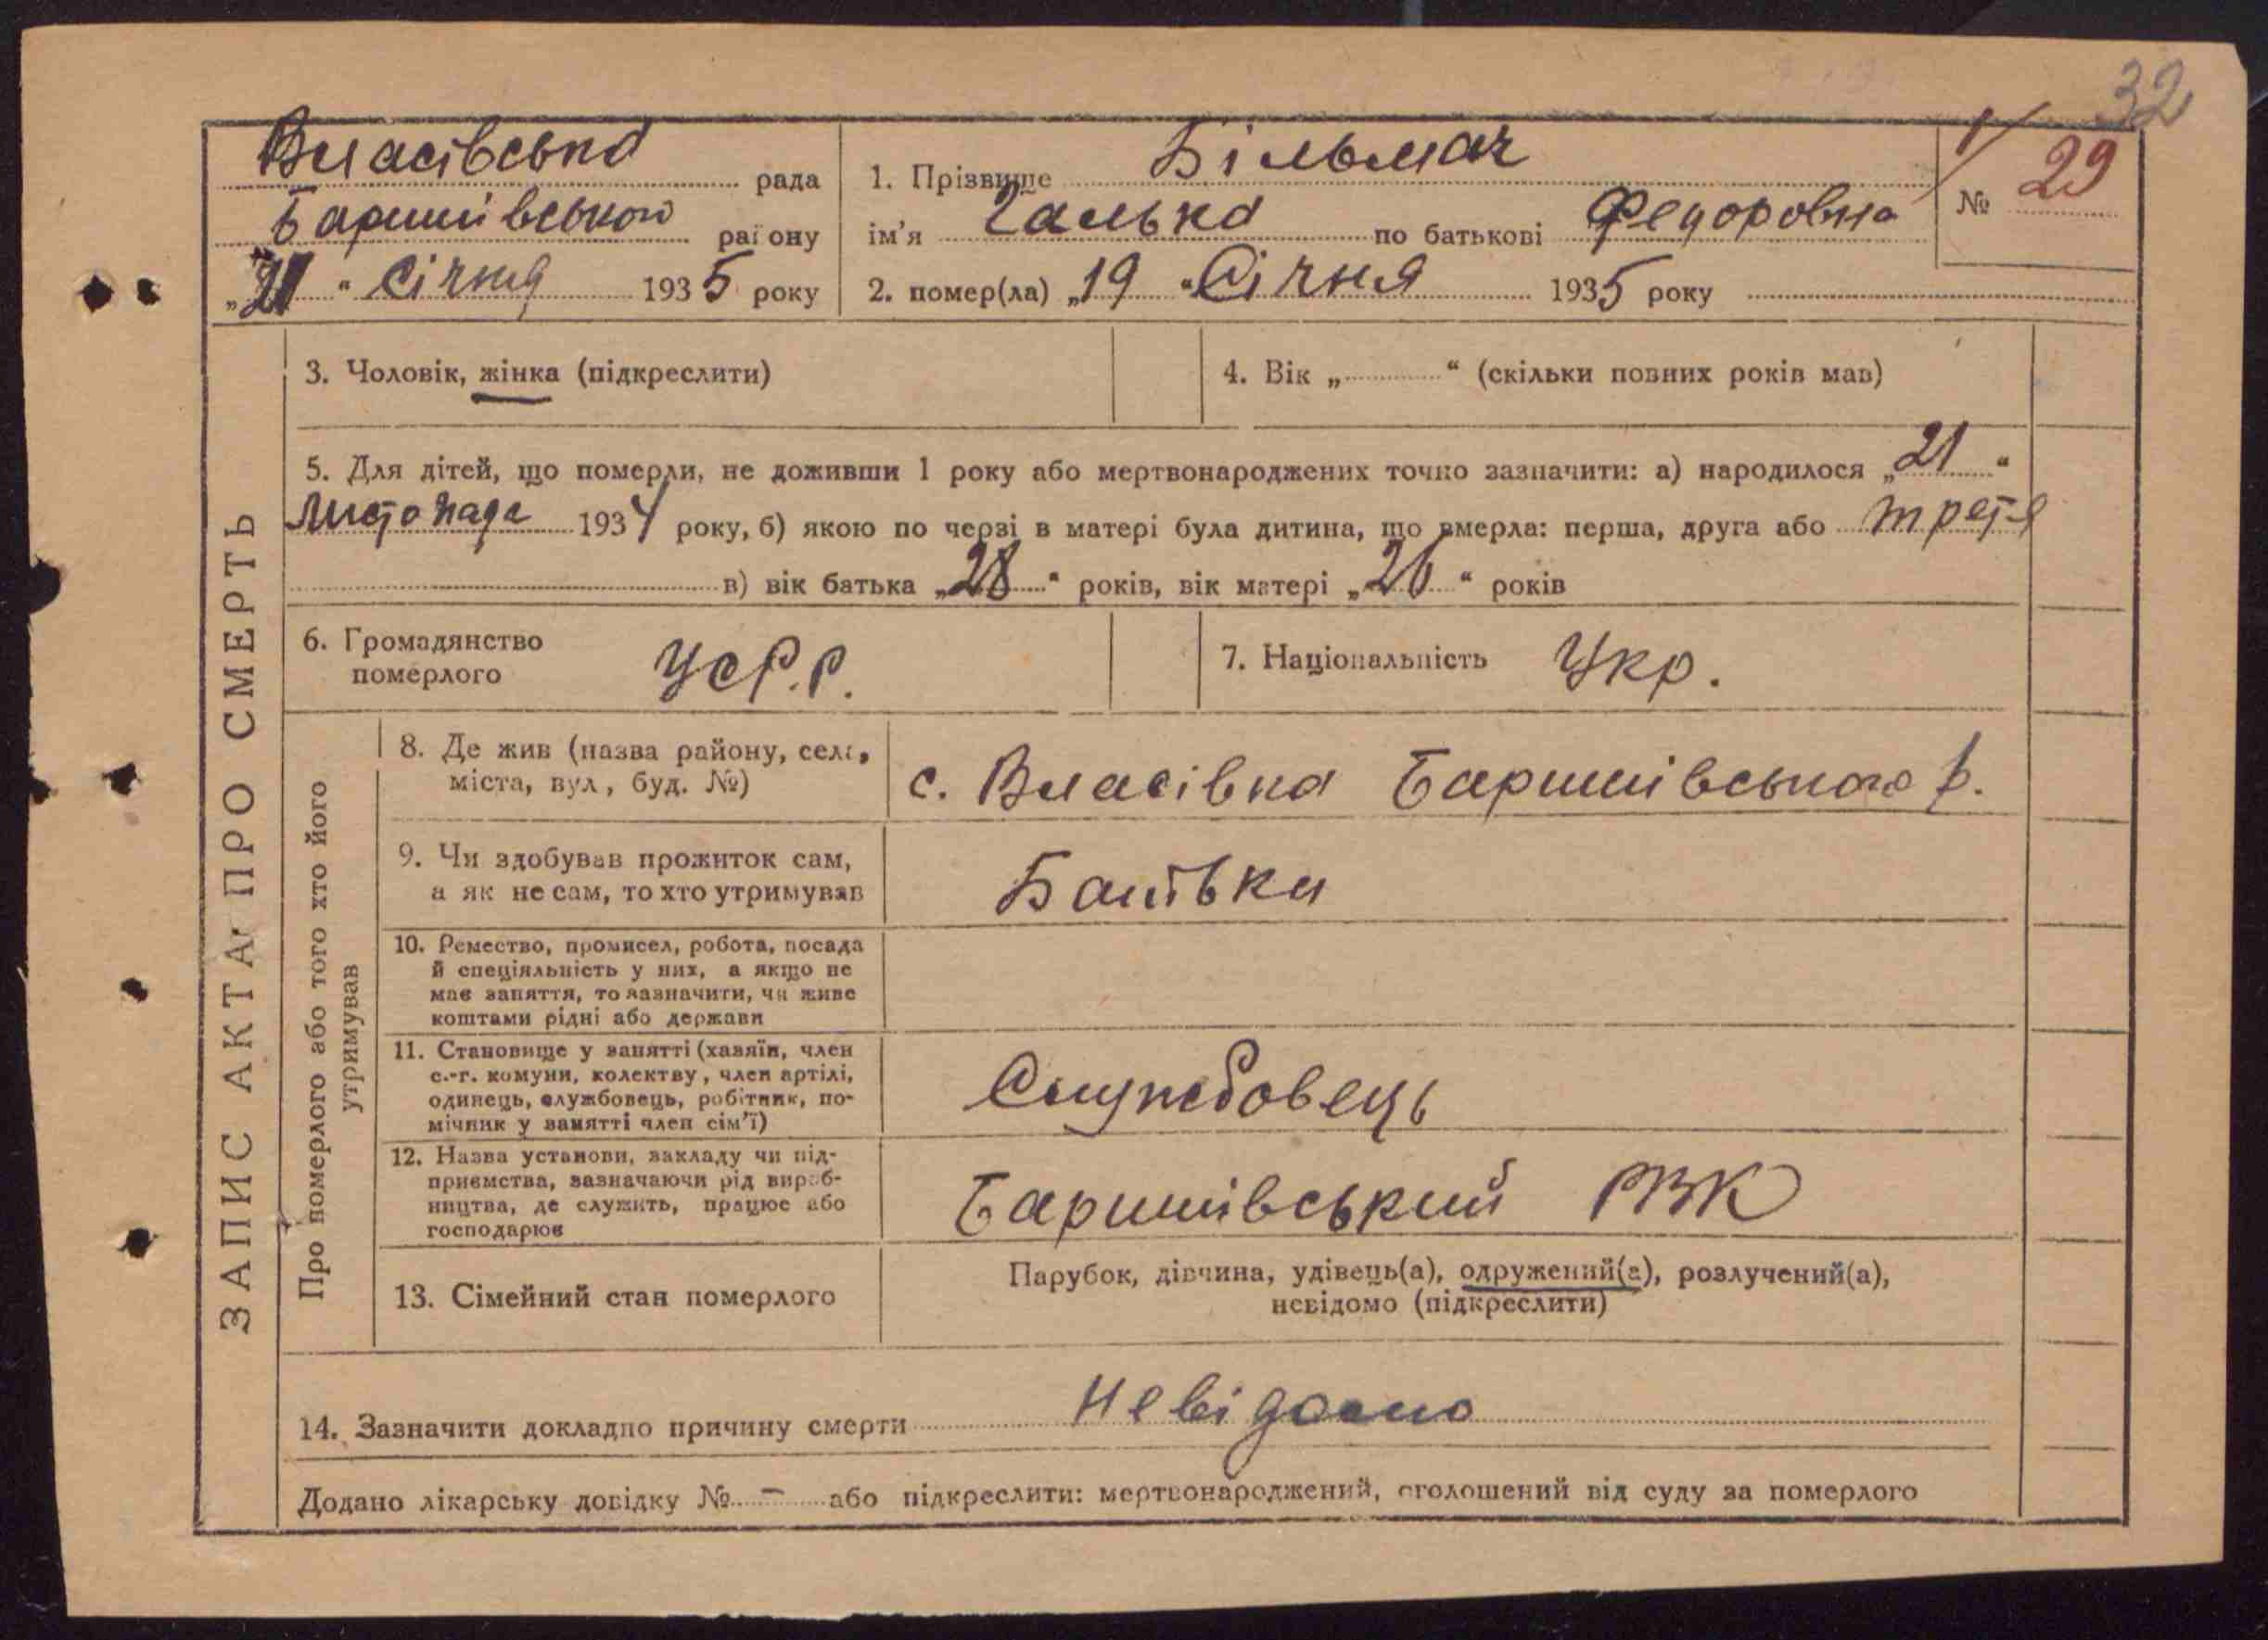 32
Власівська рада
Баришівського району
„21“ Січня 1935 року
1. Прізвище Більмач
ім'я Галька по батькові Федоровна
2. помер(ла) „19“ Січня 1935 року
№ 29
ЗАПИС АКТА ПРО СМЕРТЬ
3. Чоловік, жінка (підкреслити)
4. Вік „ “ (скільки повних років мав)
5. Для дітей, що померли, не доживши 1 року або мертвонароджених точно зазначити: а) народилося „21“
Листопада 1934 року, б) якою по черзі в матері була дитина, що вмерла: перша, друга або третя
в) вік батька „28“ років, вік матері „26“ років
6. Громадянство
померлого
УСР.Р.
7. Національність Укр.
Про померлого або того хто його
утримував
8. Де жив (назва району, села,
міста, вул, буд. №)
с. Власівка Баришівського р.
9. Чи здобував прожиток сам,
а як не сам, то хто утримував
Батько
10. Ремество, промисел, робота, посада
й спеціяльність у них, а якщо не
має заняття, то зазначити, чи живе
коштами рідні або держави
11. Становище у занятті (хазяїн, член
с.-г. комуни, колективу, член артілі,
одинець, службовець, робітник, по-
мічник у занятті член сім'ї)
Службовець
12. Назва установи, закладу чи під-
приємства, зазначаючи рід вироб-
ництва, де служить, працює або
господарює
Баришівський РВК
13. Сімейний стан померлого
Парубок, дівчина, удівець(а), одружений(а), розлучений(а),
невідомо (підкреслити)
14. Зазначити докладно причину смерти Невідомо
Додано лікарську довідку № – або підкреслити: мертвонароджений, оголошений від суду за померлого